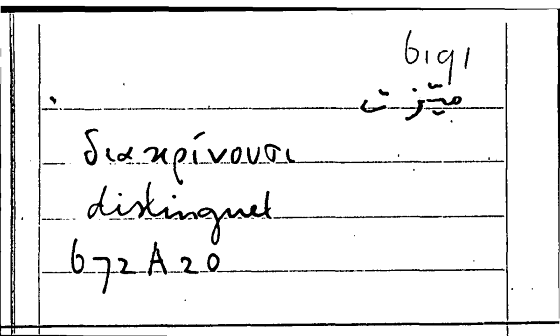 6191
ميّزت
διακρίνουσι
distinguet
672 A 20